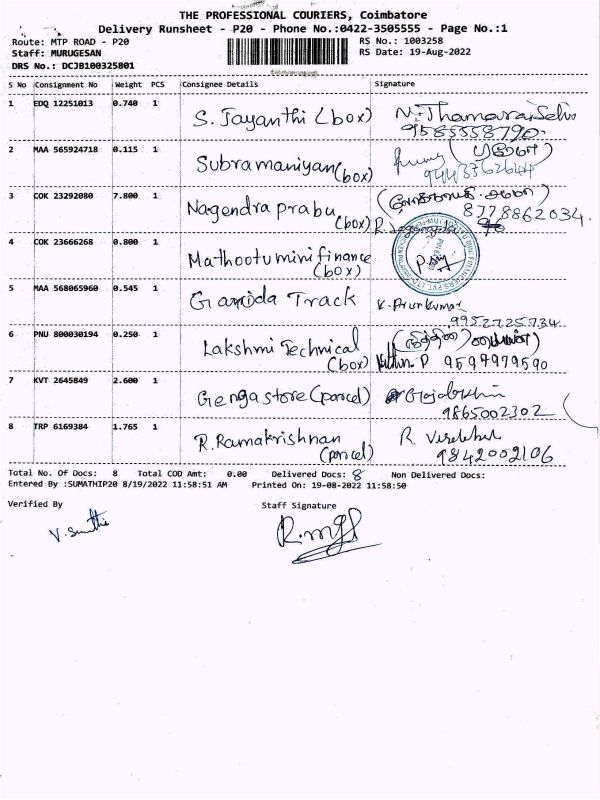 THE PROFESSIONAL COURIERS, Coimbatore
Delivery Runsheet - P20 - Phone No.:0422-3505555 - Page No.:1
Route: MTP ROAD - P20 RS No.: 1003258
Staff: MURUGESAN RS Date: 19-Aug-2022
DRS No.: DCJB100325801
S No Consignment No Weight PCS Consignee Details Signature
1 EDQ 12251013 0.740 1 S. Jayanthi (box) N. Thamarai Selvi
9585558790.
2 MAA 565924718 0.115 1 Subramaniyan (box)
9443762644
3 COK 23292080 7.800 1 Nagendra prabu (box)
8778862034.
4 COK 23666268 0.800 1 Mathootu mini finance
(box)
5 MAA 568065960 0.545 1 Garuda Track K. Arun kumar
9952725734
6 PNU 800030194 0.250 1 Lakshmi Technical
(box) P 9597979590
7 KVT 2645849 2.600 1 Genga store (parcel)
9865002302
8 TRP 6169384 1.765 1 R. Ramakrishnan R
(parcel) 9842002106
Total No. Of Docs: 8 Total COD Amt: 0.00 Delivered Docs: 8 Non Delivered Docs:
Entered By :SUMATHIP20 8/19/2022 11:58:51 AM Printed On: 19-08-2022 11:58:50
Verified By Staff Signature